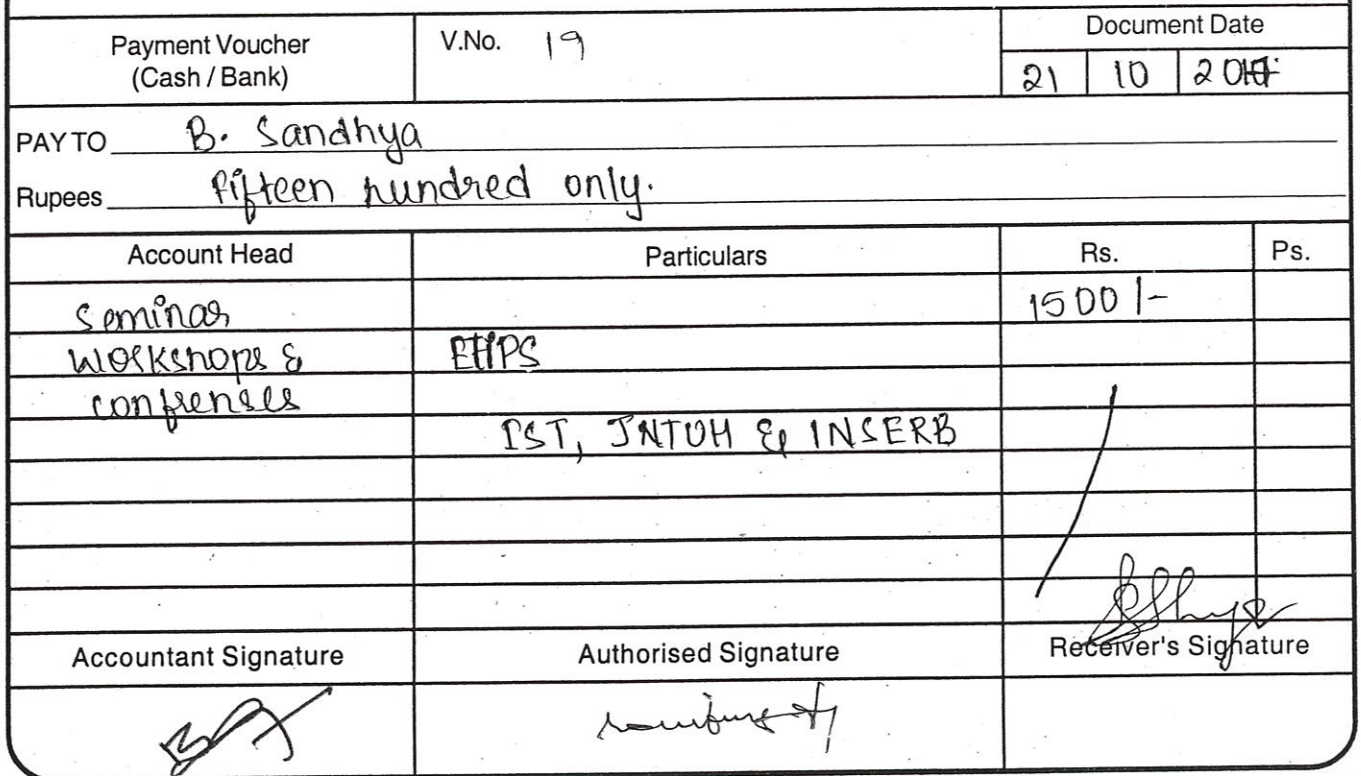 Payment Voucher
(Cash / Bank)
V.No. 19
Document Date
21 10
PAY TO B. Sandhya
Rupees Fifteen hundred only.
Account Head Particulars Rs. Ps.
Seminar 1500/-
workshops & EHPS
confrenses
IST, JNTUH & INSERB
Accountant Signature Authorised Signature Receiver's Signature